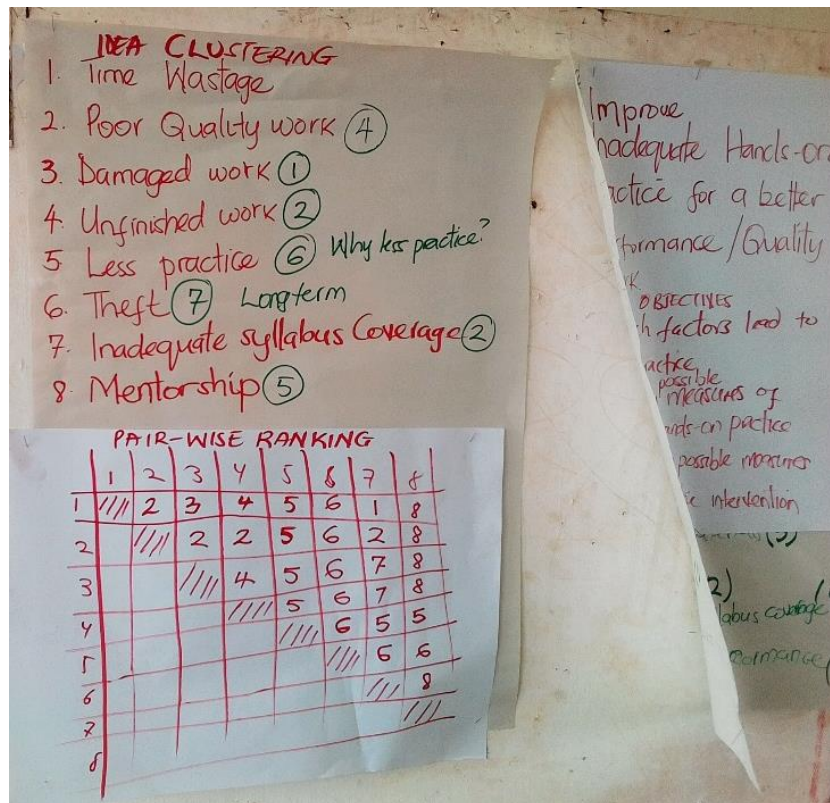 IDEA CLUSTERING
1. Time Wastage
2. Poor Quality work 4
3. Damaged work 1
4. Unfinished work 2
5 Less practice 6 Why less practice?
6. Theft 7 Longterm
7. Inadequate syllabus Coverage 2
8. Mentorship 5
PAIR-WISE RANKING
1 2 3 4 5 6 7 8
1 2 3 4 5 6 1 8
2 2 2 5 6 2 8
3 4 5 6 7 8
4 5 6 7 8
5 6 5 5
6 6 6
7 8
8
Improve
nadequate Hands-on
actice for a better
formance/Quality
k
OBJECTIVES
h factors lead to
actice
possible
measures of
nds-on practice
possible measures
ic intervention
(3)
2)
labus coverage
ormance